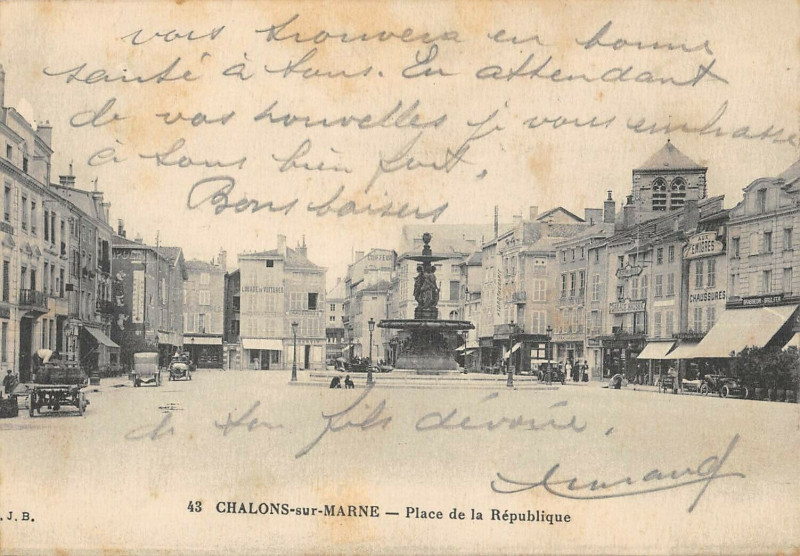 vous trouvera en bonne
santé à tous. En attendant
de vos nouvelles je vous embrasse
à tous bien fort,
Bons baisers
LOUAGE DE VOITURES
CHAUSSURES
de ton fils dévoué,
43 CHALONS-sur-MARNE — Place de la République
. J. B.